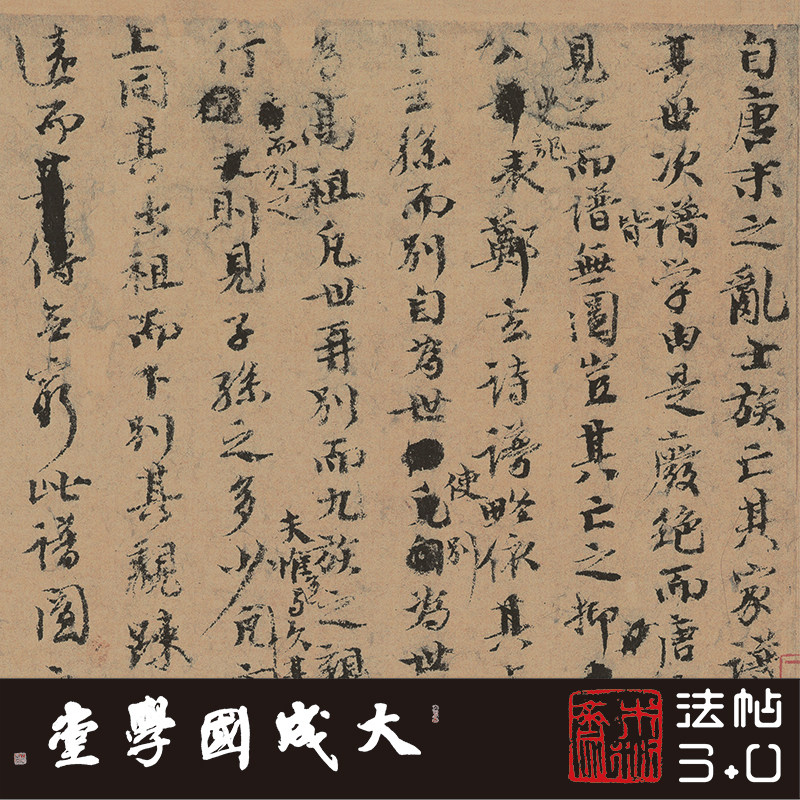 自唐末之亂士族亡其家譜
其世次譜学由是廢絶而唐
皆
見之而譜無圖豈其亡之抑
此記
表鄭玄诗譜略依其
使別
止玄孫而別自為世凡為世
為高祖凡世再別而九族之親
而列之
夫惟
行則見子孫之多少
上同其出祖而下別其親踈
遠而其傳無窮此譜圖
大成國學堂
法帖
3.0